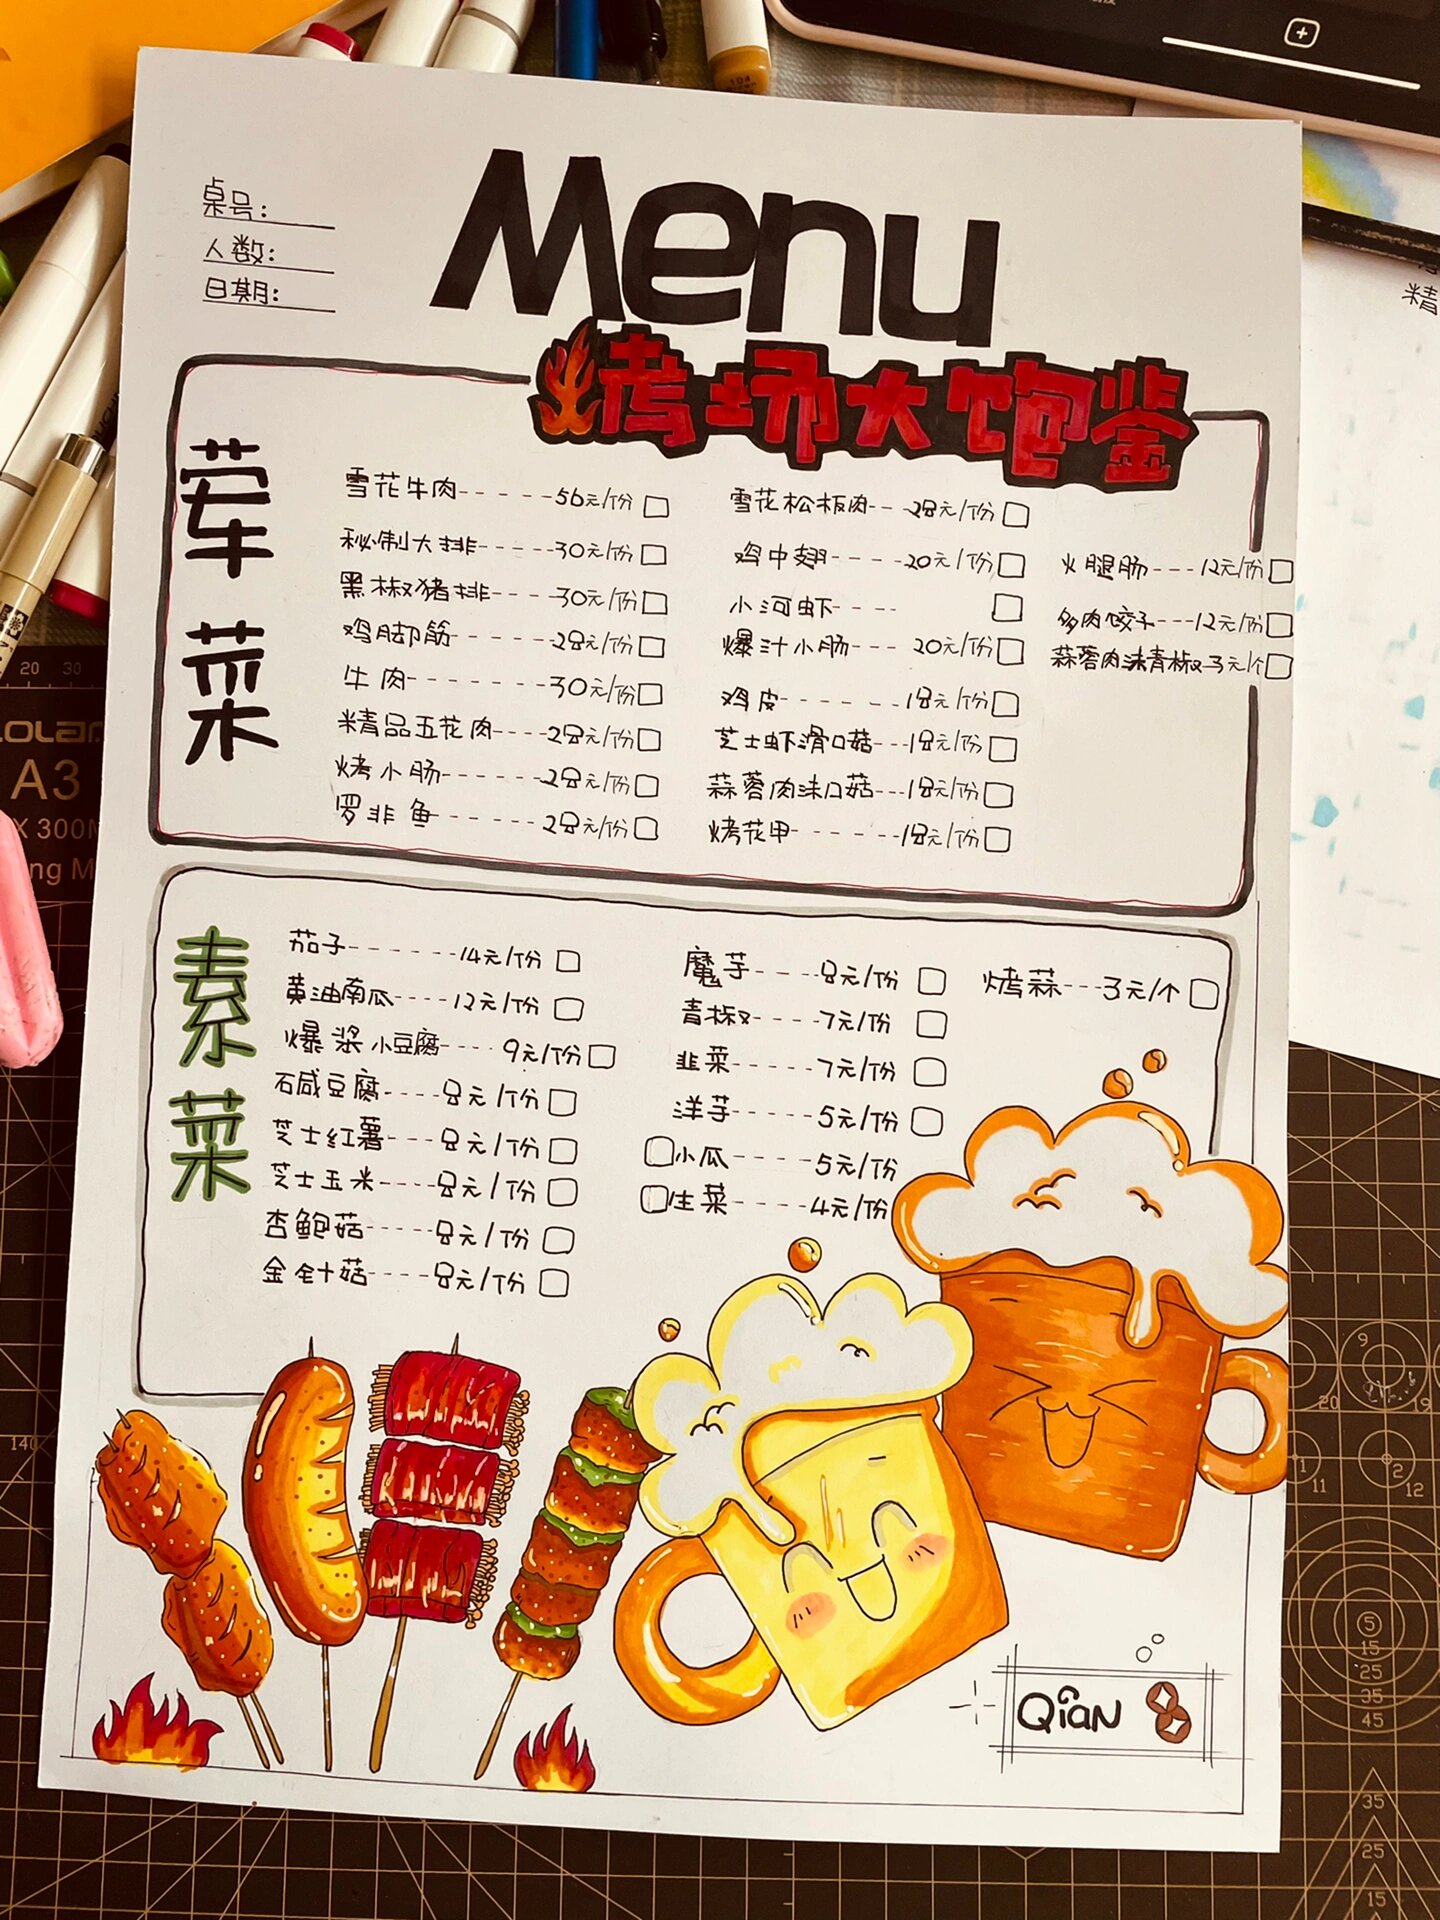 桌号:
人数:
日期:
Menu
烤场大饱鉴
荤菜
雪花牛肉-----56元/份
秘制大排-----30元/份
黑椒猪排-----30元/份
鸡脚筋------28元/份
牛肉-------30元/份
精品五花肉----28元/份
烤小肠------28元/份
罗非鱼------28元/份
雪花松板肉---28元/份
鸡中翅----20元/份
小河虾----
爆汁小肠---20元/份
鸡皮------18元/份
芝士虾滑口菇---18元/份
蒜蓉肉沫口菇---18元/份
烤花甲------18元/份
火腿肠---12元/份
多肉饺子---12元/份
蒜蓉肉沫青椒-3元/个
素菜
茄子------14元/份
黄油南瓜----12元/份
爆浆小豆腐----9元/份
石咸豆腐----8元/份
芝士红薯---8元/份
芝士玉米----8元/份
杏鲍菇-----8元/份
金针菇----8元/份
魔芋----8元/份
青椒----7元/份
韭菜-----7元/份
洋芋-----5元/份
小瓜-----5元/份
生菜-----4元/份
烤蒜---3元/个
Qian
OLAR
A3
X 300M
ng M
精
104
20 30
140
9
20
19
11
2
12
5
15
25
35
45
35
25
15